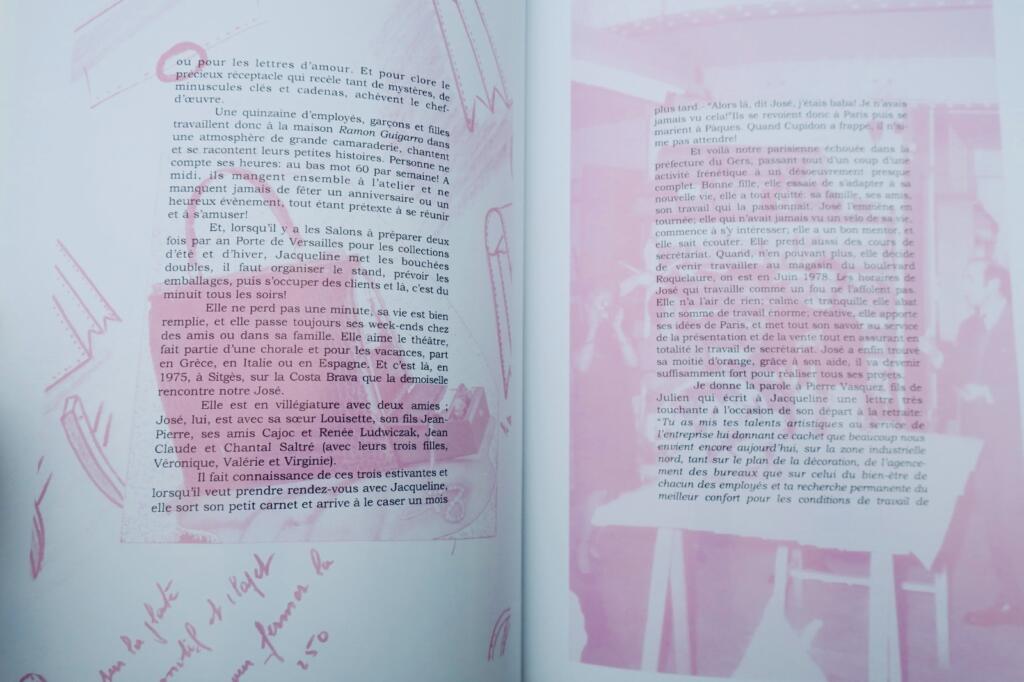 ou pour les lettres d'amour. Et pour clore le
précieux réceptacle qui recèle tant de mystères, de
minuscules clés et cadenas, achèvent le chef-
d'œuvre.
Une quinzaine d'employés, garçons et filles
travaillent donc à la maison Ramon Guigarro dans
une atmosphère de grande camaraderie, chantent
et se racontent leurs petites histoires. Personne ne
compte ses heures: au bas mot 60 par semaine! A
midi, ils mangent ensemble à l'atelier et ne
manquent jamais de fêter un anniversaire ou un
heureux évènement, tout étant prétexte à se réunir
et à s'amuser!
Et, lorsqu'il y a les Salons à préparer deux
fois par an Porte de Versailles pour les collections
d'été et d'hiver, Jacqueline met les bouchées
doubles, il faut organiser le stand, prévoir les
emballages, puis s'occuper des clients et là, c'est du
minuit tous les soirs!
Elle ne perd pas une minute, sa vie est bien
remplie, et elle passe toujours ses week-ends chez
des amis ou dans sa famille. Elle aime le théâtre,
fait partie d'une chorale et pour les vacances, part
en Grèce, en Italie ou en Espagne. Et c'est là, en
1975, à Sitgès, sur la Costa Brava que la demoiselle
rencontre notre José.
Elle est en villégiature avec deux amies ;
José, lui, est avec sa sœur Louisette, son fils Jean-
Pierre, ses amis Cajoc et Renée Ludwiczak, Jean
Claude et Chantal Saltré (avec leurs trois filles,
Véronique, Valérie et Virginie).
Il fait connaissance de ces trois estivantes et
lorsqu'il veut prendre rendez-vous avec Jacqueline,
elle sort son petit carnet et arrive à le caser un mois
sur la
et
fermer la
250
plus tard - "Alors là, dit José, j'étais baba! Je n'avais
jamais vu cela!"Ils se revoient donc à Paris puis se
marient à Pâques. Quand Cupidon a frappé, il n'ai-
me pas attendre!
Et voilà notre parisienne échouée dans la
préfecture du Gers, passant tout d'un coup d'une
activité frénétique à un désoeuvrement presque
complet. Bonne fille, elle essaie de s'adapter à sa
nouvelle vie, elle a tout quitté: sa famille, ses amis,
son travail qui la passionnait. José l'emmène en
tournée; elle qui n'avait jamais vu un vélo de sa vie,
commence à s'y intéresser; elle a un bon mentor, et
elle sait écouter. Elle prend aussi des cours de
secrétariat. Quand, n'en pouvant plus, elle décide
de venir travailler au magasin du boulevard
Roquelaure, on est en Juin 1978. Les horaires de
José qui travaille comme un fou ne l'affolent pas.
Elle n'a l'air de rien; calme et tranquille elle abat
une somme de travail énorme; créative, elle apporte
ses idées de Paris, et met tout son savoir au service
de la présentation et de la vente tout en assurant en
totalité le travail de secrétariat. José a enfin trouvé
sa moitié d'orange, grâce à son aide, il va devenir
suffisamment fort pour réaliser tous ses projets.
Je donne la parole à Pierre Vasquez, fils de
Julien qui écrit à Jacqueline une lettre très
touchante à l'occasion de son départ à la retraite:
"Tu as mis tes talents artistiques au service de
l'entreprise lui donnant ce cachet que beaucoup nous
envient encore aujourd'hui, sur la zone industrielle
nord, tant sur le plan de la décoration, de l'agence-
ment des bureaux que sur celui du bien-être de
chacun des employés et ta recherche permanente du
meilleur confort pour les conditions de travail de